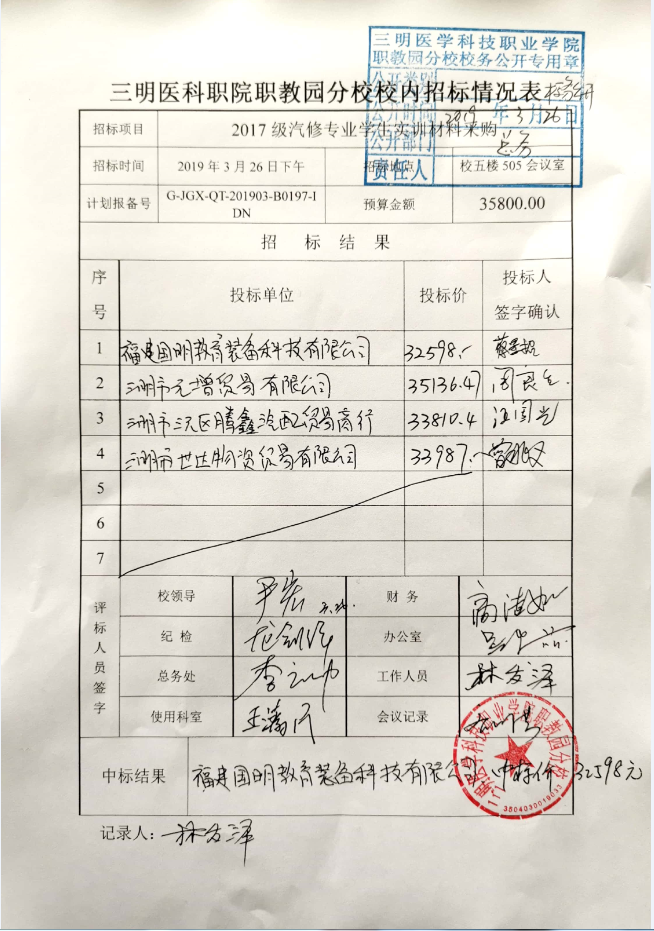 三明医学科技职业学院
职教园分校校务公开专用章
公开类别
三明医科职院职教园分校校内招标情况表
公开时间 2019年3月26日
招标项目 2017级汽修专业学生实训材料采购
公开部门 总务
招标时间 2019年3月26日下午 招标地点 校五楼505会议室
责任人
计划报备号 G-JGX-QT-201903-B0197-I
DN
预算金额 35800.00
招 标 结 果
序号 投标单位 投标价 投标人
签字确认
1 福建国明教育装备科技有限公司 32598.-
2 三明市元增贸易有限公司 35136.47 周良生
3 三明市三元区腾鑫汽配贸易商行 33810.4 汪国光
4 三明市世达物资贸易有限公司 33987.-
5
6
7
评标人员签字
校领导 尹宏 3.26. 财务
纪检 办公室
总务处 工作人员 林友泽
使用科室 会议记录
三明医学科技职业学院职教园分校
3504030019033
中标结果 福建国明教育装备科技有限公司 中标价 32598元
记录人: 林友泽